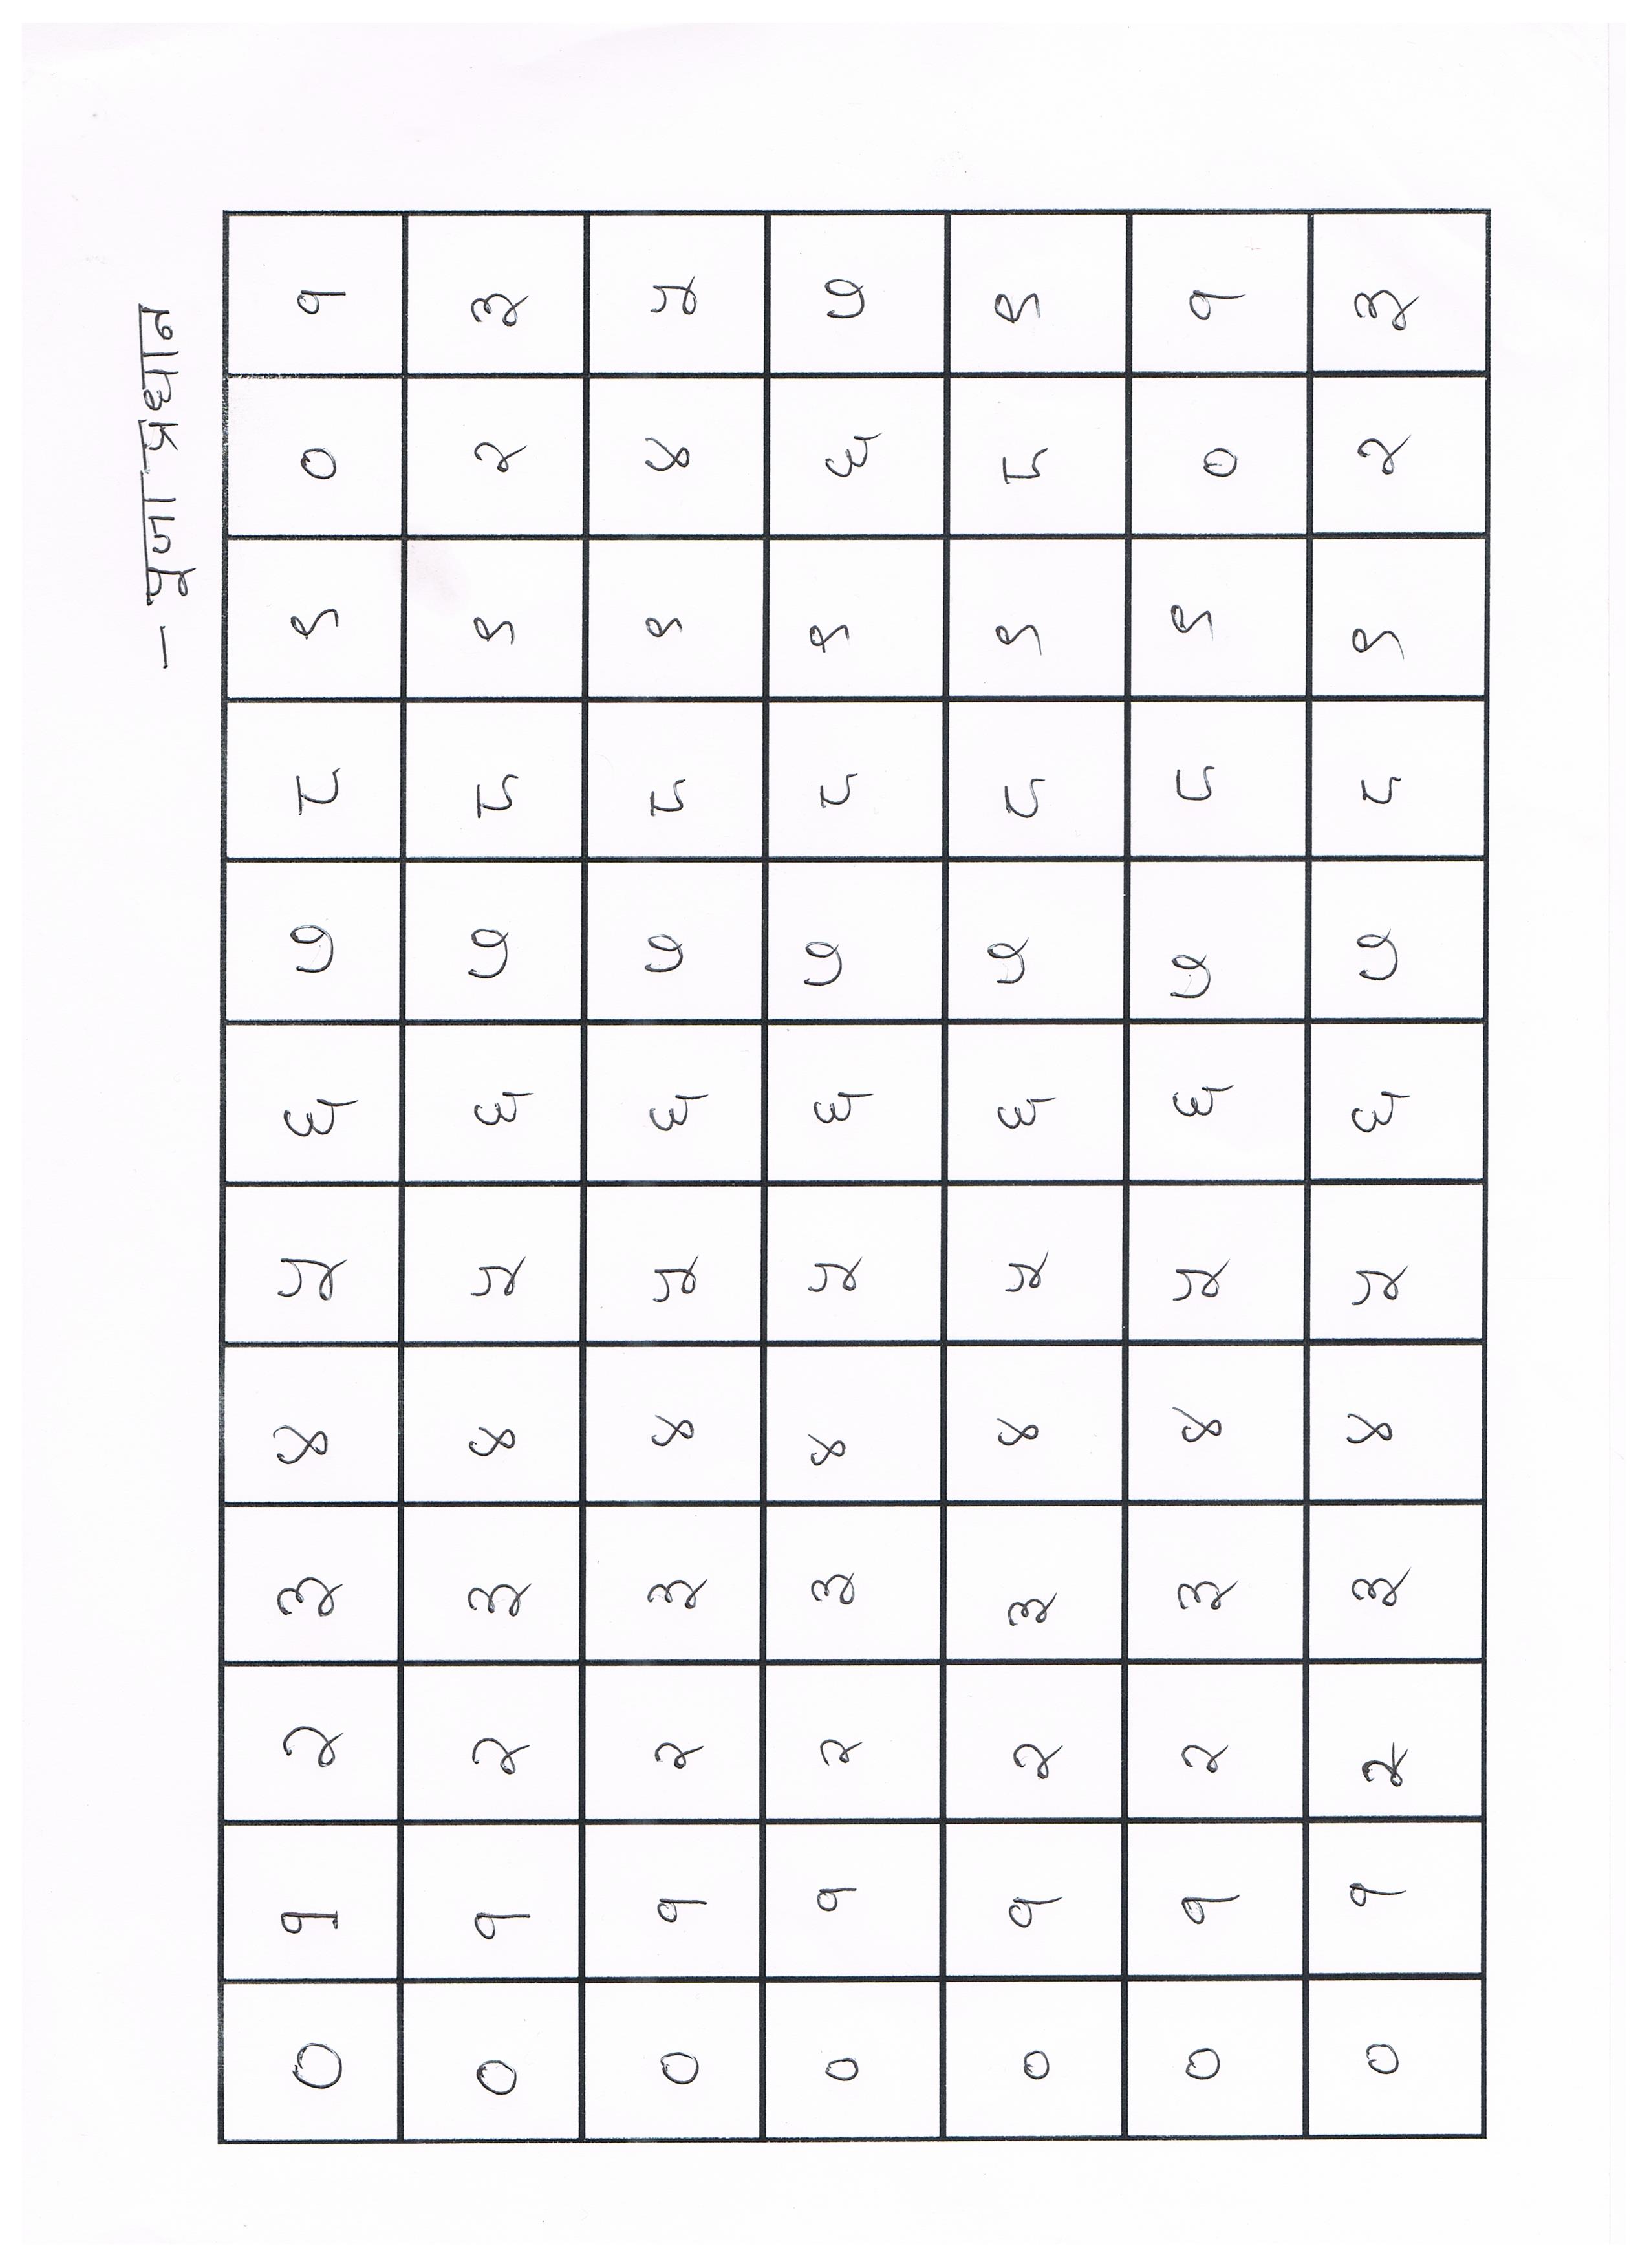 — पूजा प्रधान
० १ २ ३ ४ ५ ६ ७ ८ ९ ० १
० १ २ ३ ४ ५ ६ ७ ८ ९ २ ३
० १ २ ३ ४ ५ ६ ७ ८ ९ ४ ५
० १ २ ३ ४ ५ ६ ७ ८ ९ ६ ७
० १ २ ३ ४ ५ ६ ७ ८ ९ ८ ९
० १ २ ३ ४ ५ ६ ७ ८ ९ ० १
० १ २ ३ ४ ५ ६ ७ ८ ९ २ ३